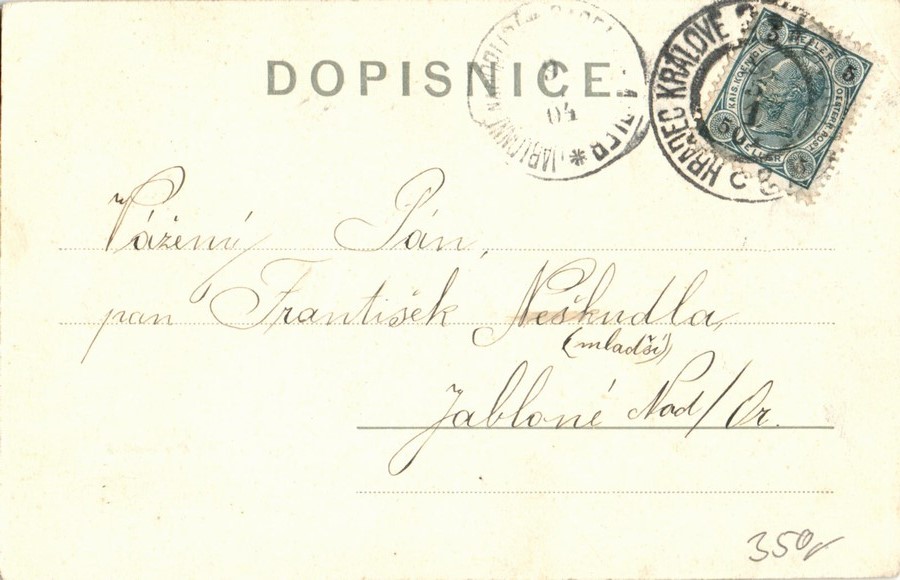 DOPISNICE.
HRADEC KRÁLOVÉ
04
5 HELLER 5
KAIS. KÖNIGL.
OESTERR. POST.
5 HELLER 5
Vážený Pán,
pan František Neškudla,
(mladší)
Jabloné Nad/Or.
350,-